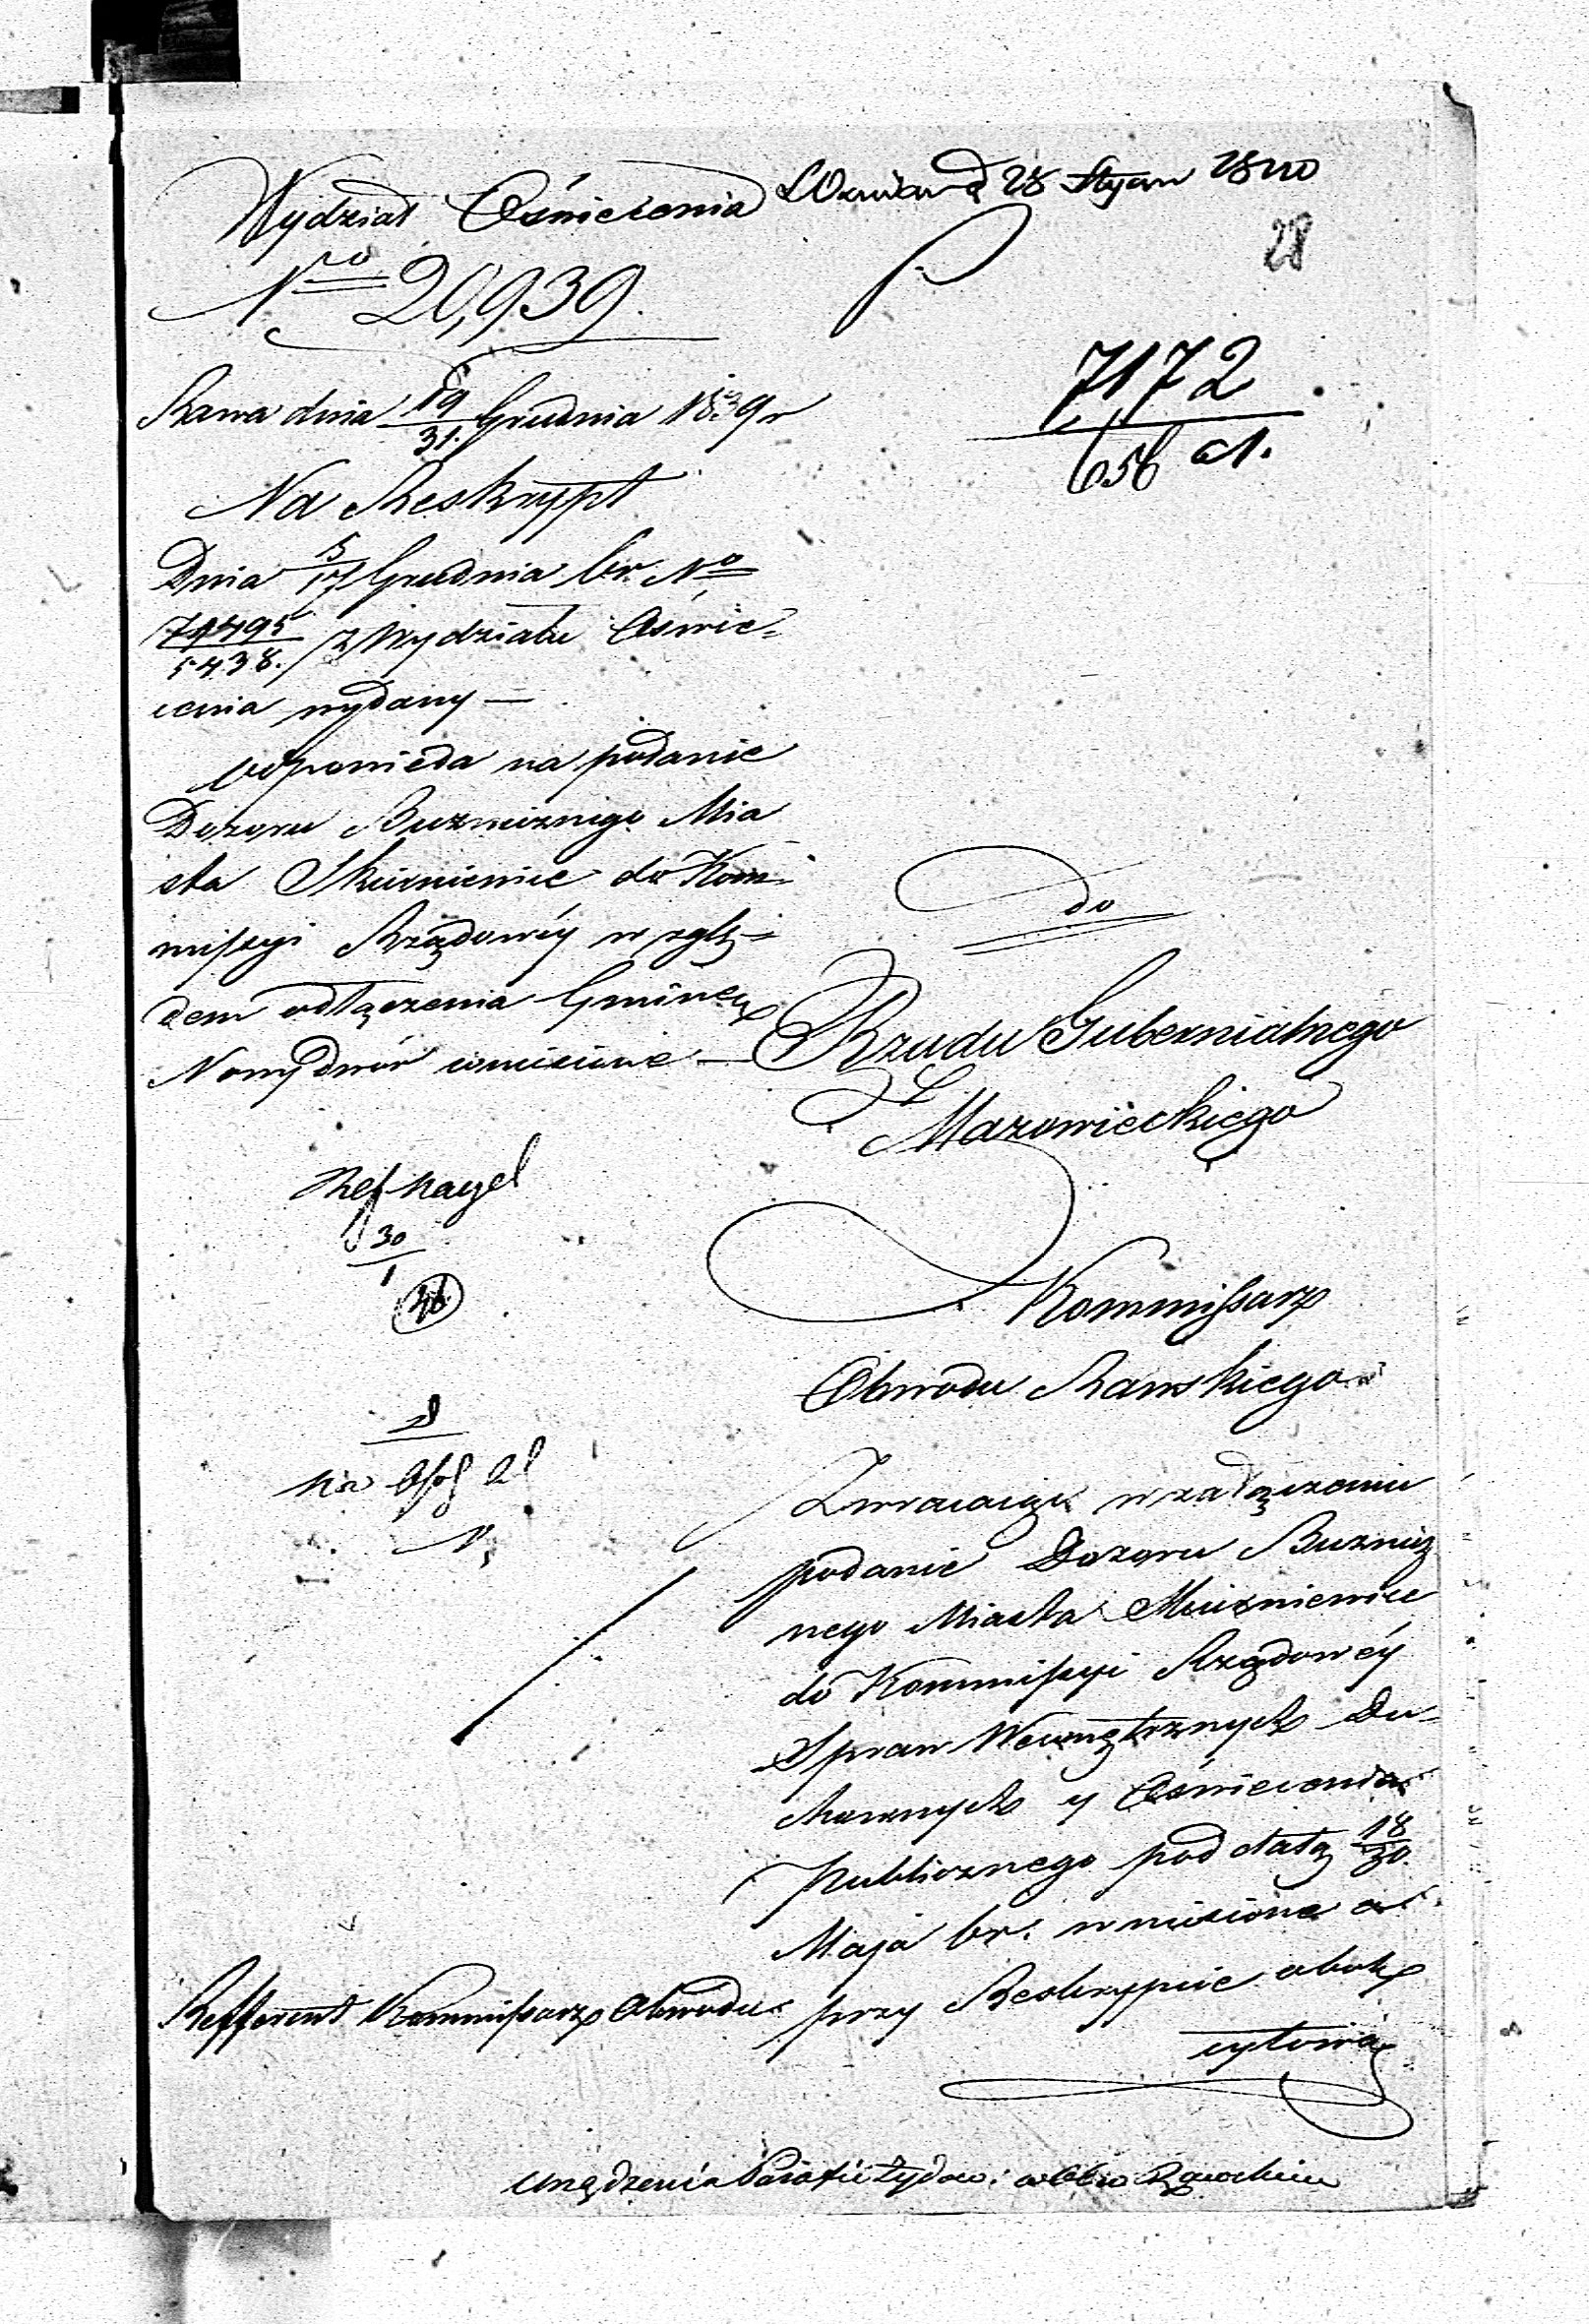 Wydział Oświecenia
28 Stycz 1840
28
Nro 20,939.
7172
656 a1.
Rawa dnia 19/31. Grudnia 1839 r
Na Reskrypt
Dnia 5/17 Grudnia br. No
74495/5438. z Wydziału Oświe=
cenia wydany —
odpowieda na podanie
Dozoru Bużniznego Mia
sta Skierniewic do Kom-
missyi Rządowéy wzglę=
dem odłączenia Gminy
Nowy dwór wniesione —
do
Rządu Gubernialnego
Mazowieckiego
Ref Nagel
30/1
Kommissarz
Obwodu Rawskiego
Zwracając w załączeniu
podanie Dozoru Bużnicz
nego Miasta Skierniewice
do Kommissyi Rządowéy
Spraw Wewnętrznych Du=
chownych y Oświecenia
Publicznego pod datą 18/30.
Maja br. wniesione a
przy Reskrypcie obok
cytowa
Refferent Kommissarz Obwodu
Urządzenia Parafii Żydow: w Obw Rawskim